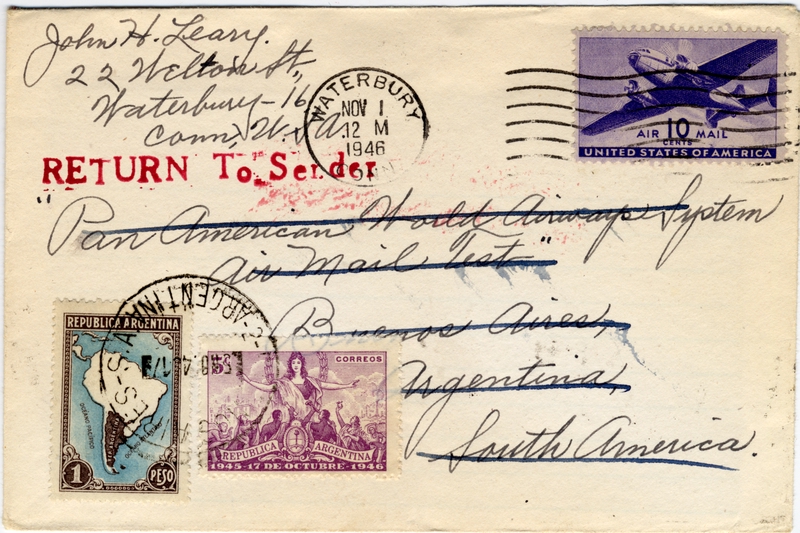 John H. Leary.
22 Welton St.,
Waterbury-16,
Conn., U.S.A.
WATERBURY
NOV 1
12 M
1946
CONN.
AIR 10 MAIL
CENTS
UNITED STATES OF AMERICA
RETURN To Sender
"Pan American World Airways System
Air Mail Test"
Buenos Aires,
Argentina,
South America.
ARGENTINA
REPUBLICA ARGENTINA
OCEANO PACIFICO
1 PESO
5c CORREOS
REPUBLICA ARGENTINA
1945-17 DE OCTUBRE-1946